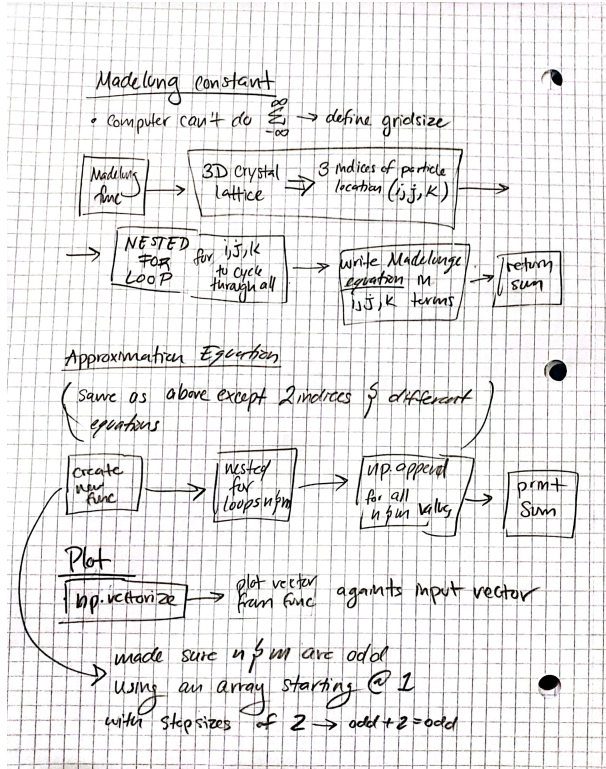 Madelung constant
• computer can't do ∞ Σ -∞ → define gridsize
Madelung func → 3D crystal lattice ⇒ 3 indices of particle location (i,j,k) →
→ NESTED FOR LOOP for i,j,k to cycle through all → write Madelunge equation in i,j,k terms → return sum
Approximation Equation
(same as above except 2 indices & different
equations)
create new func → nested for loops n&m → np.append for all n&m values → print sum
Plot
np.vectorize → plot vector from func againts input vector
made sure n & m are odd
using an array starting @ 1
with stepsizes of 2 → odd+2=odd